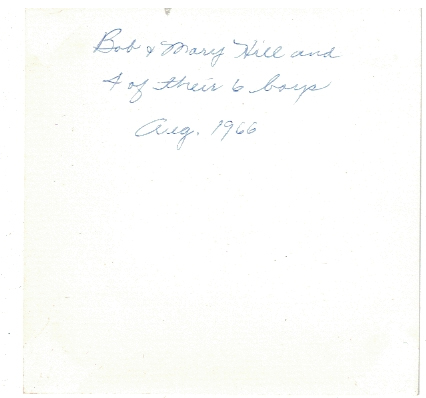 Bob & Mary Hill and
4 of their 6 boys
Aug. 1966